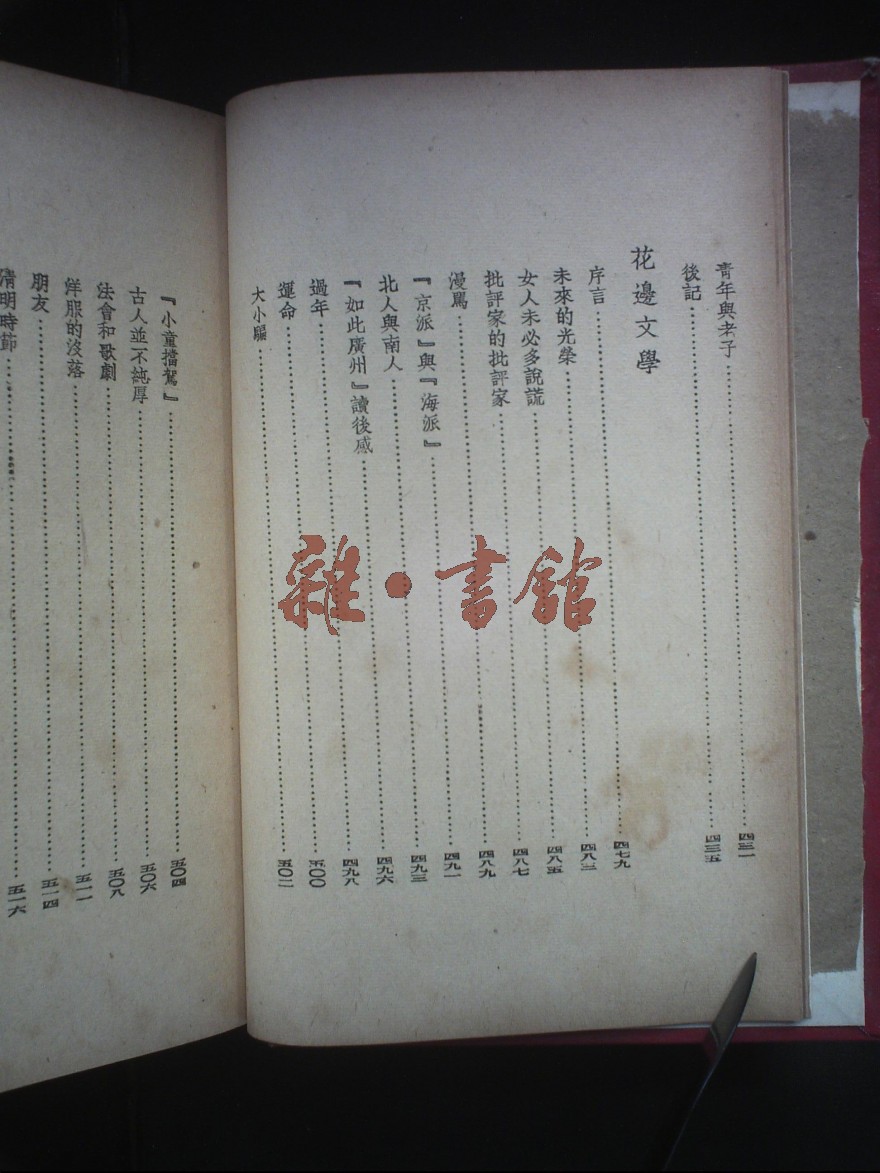 青年與老子……四三一
後記……四三五
花邊文學
序言……四七九
未來的光榮……四八二
女人未必多說謊……四八五
批評家的批評家……四八七
漫罵……四八九
『京派』與『海派』……四九一
北人與南人……四九三
『如此廣州』讀後感……四九六
過年……四九八
運命……五〇〇
大小騙……五〇二
『小童擋駕』……五〇四
古人並不純厚……五〇六
法會和歌劇……五〇八
洋服的沒落……五一一
朋友……五一四
清明時節……五一六
雜·書館